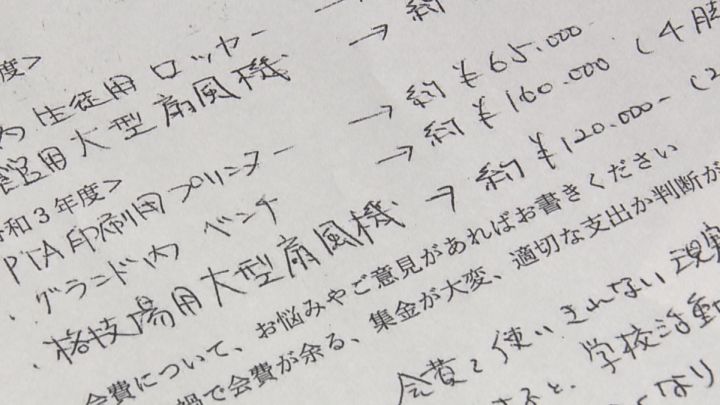 度>
内 生徒用 ロッカー →
用大型扇風機 → 約
令和3年度>
PTA印刷用プリンター → 約 ¥65.000
・グランド内 ベンチ → 約 ¥160.000 (4脚
・格技場用大型扇風機 → 約 ¥120.000- (2
会費について、お悩みやご意見があればお書きください
禍で会費が余る、集金が大変、適切な支出か判断が
会費を使いきれない現実
ると、学校活動
なり